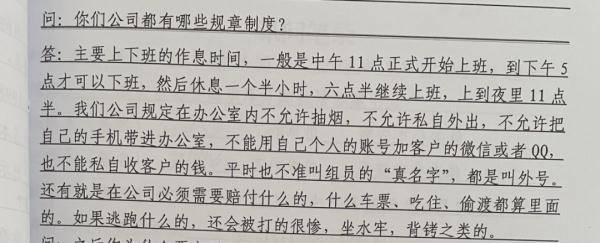 问：你们公司都有哪些规章制度？
答：主要上下班的作息时间，一般是中午 11 点正式开始上班，到下午 5
点才可以下班，然后休息一个半小时，六点半继续上班，上到夜里 11 点
半。我们公司规定在办公室内不允许抽烟，不允许私自外出，不允许把
自己的手机带进办公室，不能用自己个人的账号加客户的微信或者 QQ，
也不能私自收客户的钱。平时也不准叫组员的“真名字”，都是叫外号。
还有就是在公司必须需要赔付什么的，什么车票、吃住、偷渡都算里面
的。如果逃跑什么的，还会被打的很惨，坐水牢，背铐之类的。